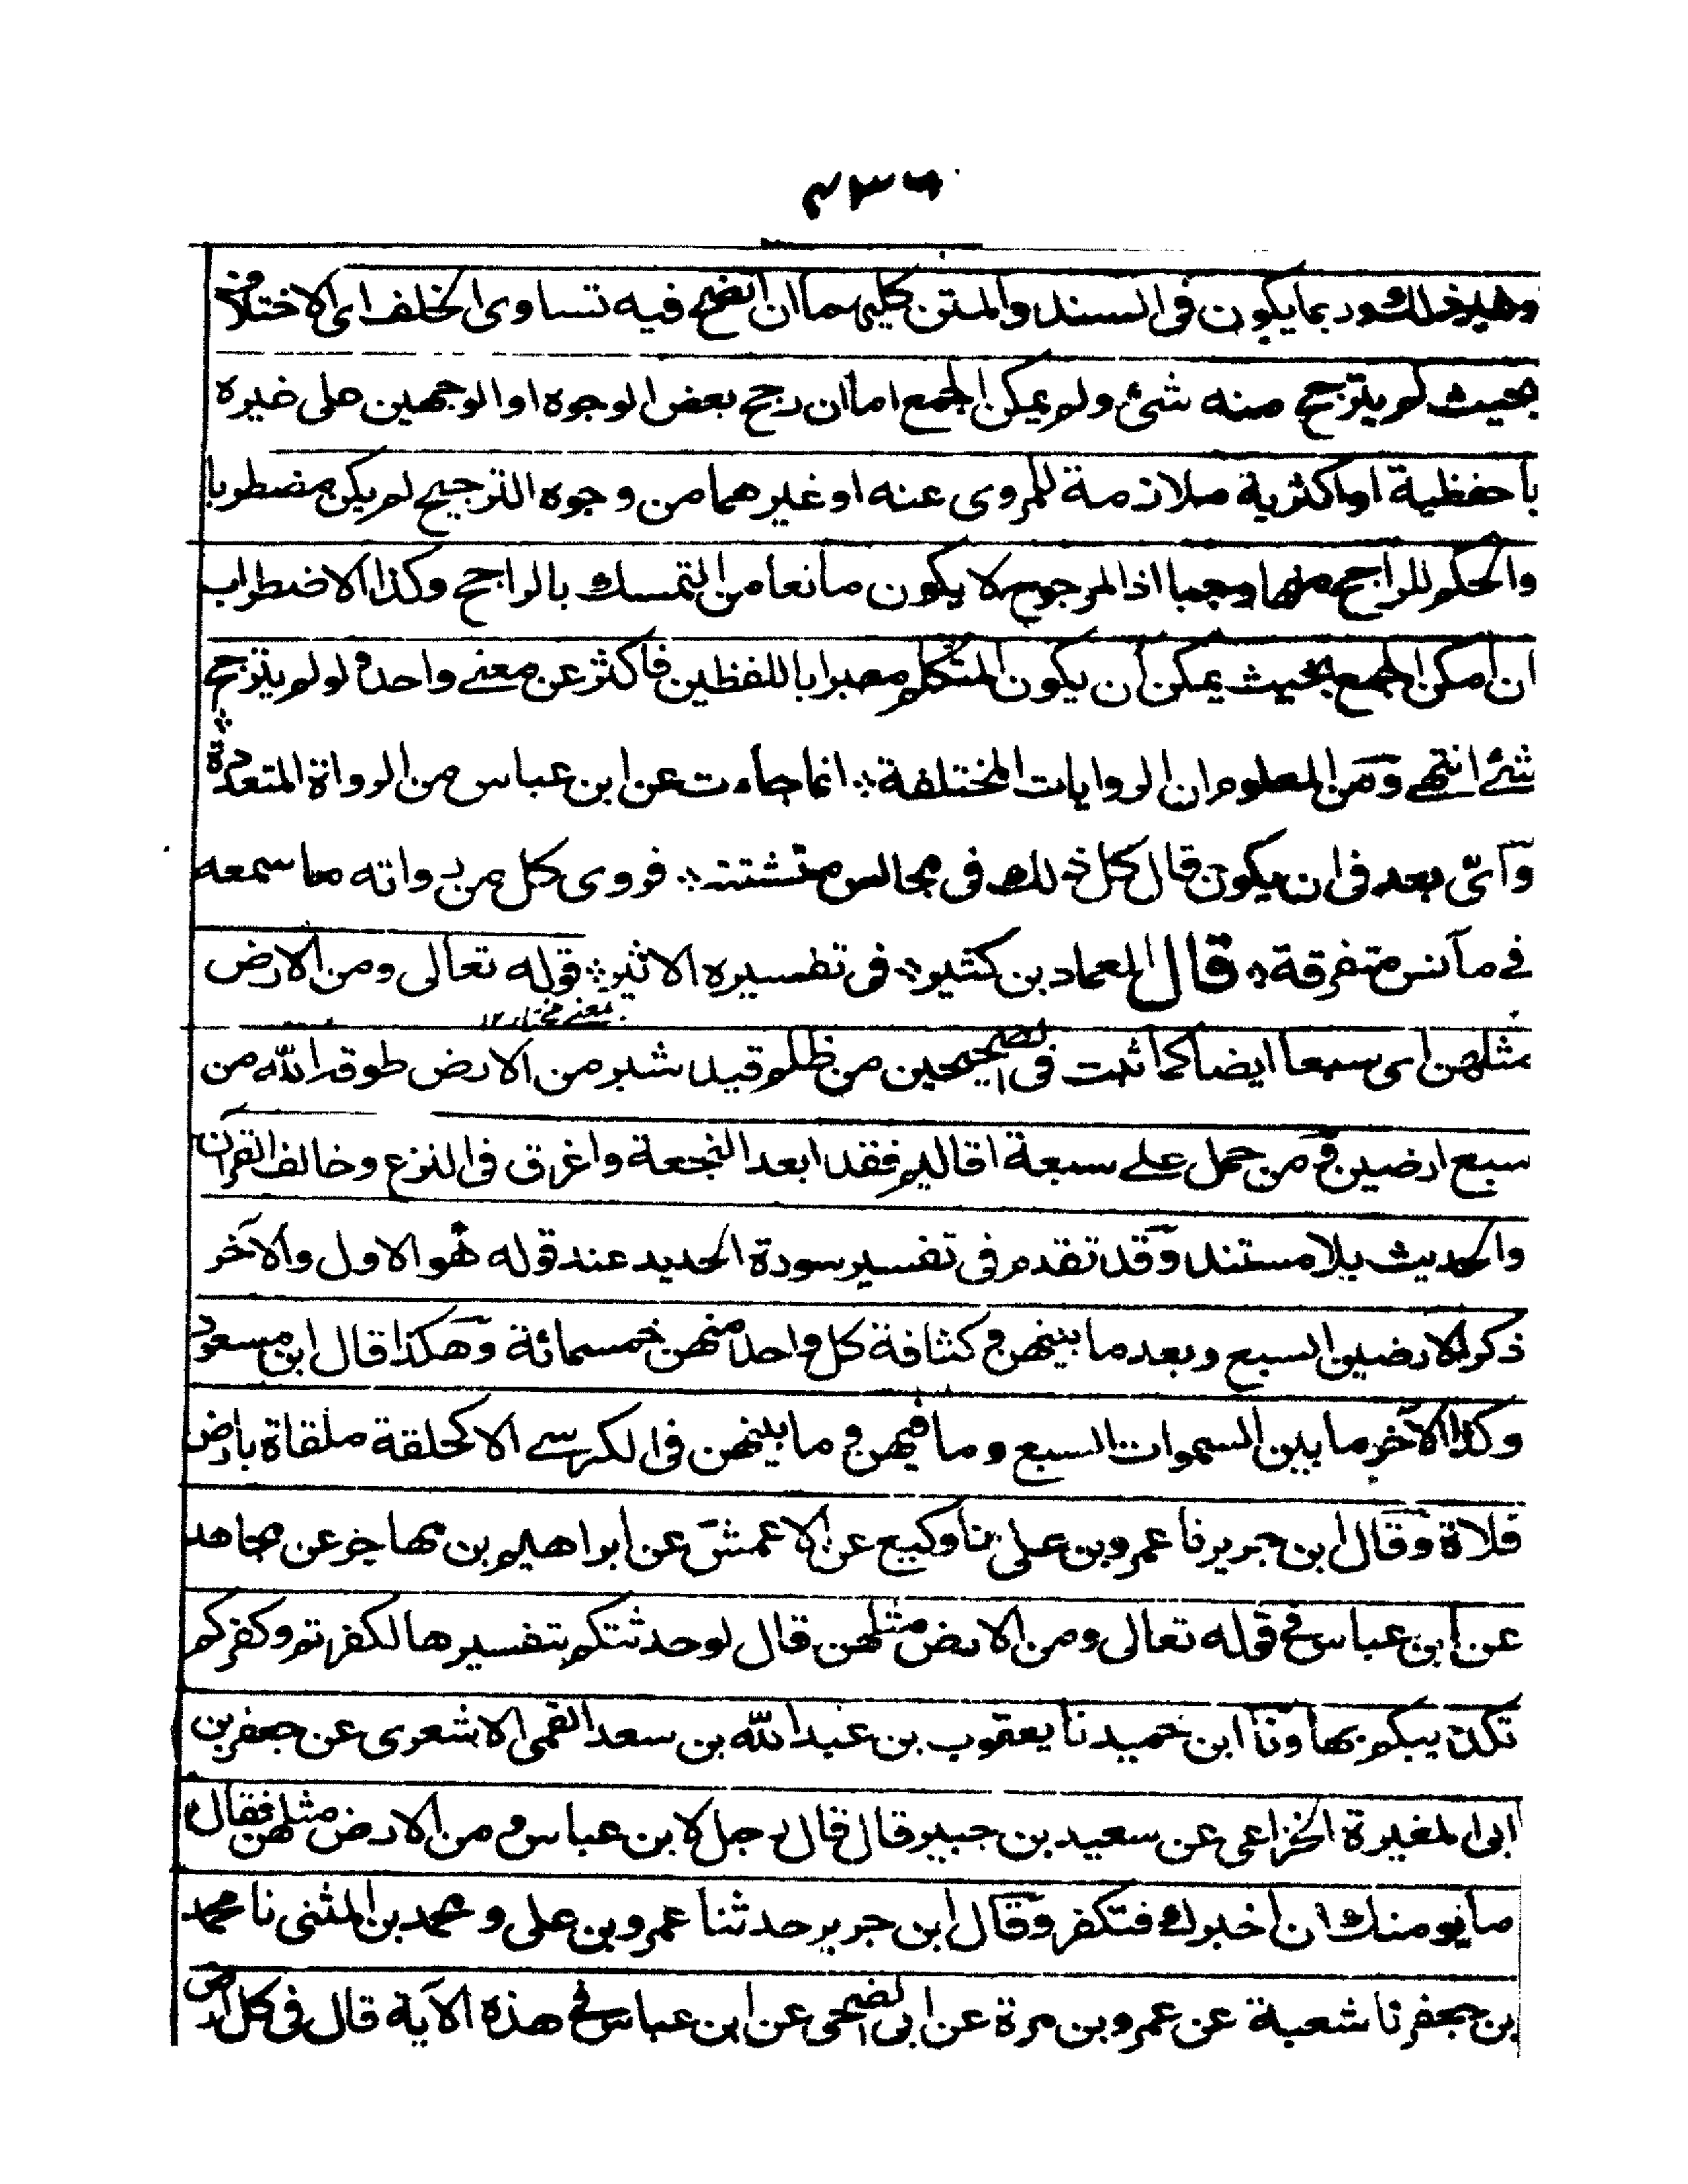 وغير ذلك وربما يكون فى السند والمتن كليهما ان اتضح فيه تساوى الخلف اى الاختلاف
بحيث لم يترجح منه شئ ولم يمكن الجمع اما ان رجح بعض الوجوه او الوجهين على غيره
باحفظية او اكثرية ملازمة للمروى عنه او غيرهما من وجوه الترجيح لم يكن مضطربا
والحكم للراجح منهما وجبا اذ المرجوح لا يكون مانعا من التمسك بالراجح وكذا الاضطراب
ان امكن الجمع بحيث يمكن أن يكون المتكلم معبرا باللفظين فاكثر عن معنے واحد ولو لم يترجح
شئ انتهے ومن المعلوم ان الروايات المختلفة ⁘ انما جاءت عن ابن عباس من الرواة المتعددة ⁘
وآىّ بعد فى ان يكون قال كل ذلك فى مجالس متشتتة ⁘ فروى كل من رواته ما سمعه
فے مآنس متفرقة ⁘ قال العماد بن كثير ⁘ فى تفسيره الاثير ⁘ قوله تعالى ومن الارض
بمعنے مختار ١٢
مثلهن اى سبعا ايضا كما ثبت فى الصحيحين من ظلم قيد شبر من الارض طوقه الله من
سبع ارضين ومن حمل علے سبعة اقاليم فقد ابعد النجعة واغرق فى النزع وخالف القرآن
والحديث بلا مستند وقد تقدم فى تفسير سورة الحديد عند قوله هو الاول والآخر
ذكر الارضين السبع وبعد ما بينهن و كثافة كل واحد منهن خمسمائة وهكذا قال ابن مسعود
وكذا الآخر ما بين السموات السبع وما فيهن و ما بينهن فى الكرسے الا كحلقة ملقاة بارض
فلاة وقال ابن جرير نا عمرو بن على نا وكيع عن الاعمش عن ابراهيم بن مهاجر عن مجاهد
عن ابن عباس فے قوله تعالى ومن الارض مثلهن قال لو حدثتكم بتفسيرها لكفرتم وكفركم
تكذيبكم بها ونا ابن حميد نا يعقوب بن عبد الله بن سعد القمى الاشعرى عن جعفر بن
ابى المغيرة الخزاعى عن سعيد بن جبير قال قال رجل لابن عباس و من الارض مثلهن فقال
ما يومنك ان اخبرك فتكفر وقال ابن جرير حدثنا عمرو بن على و محمد بن المثنى نا محمد
بن جعفر نا شعبة عن عمرو بن مرة عن ابى الضحى عن ابن عباس فے هذه الآية قال فى كل ارض